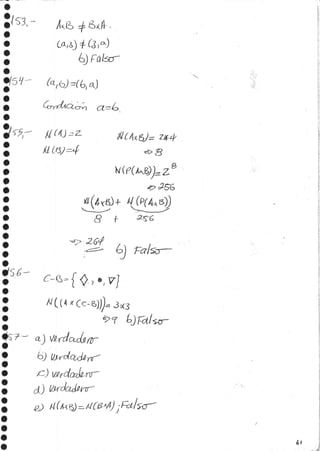 153.-
AxB ≠ BxA.
(a,3) ≠ (3,a)
b) Falso
154- (a,b)=(b,a)
Condición a=b
155,- N(A)=2 N(AxB)= 2x4
N(B)=4 ⇔ 8
N(P(AxB))=2⁸
⇔ 256
N(AxB)+ N(P(AxB))
8 + 256
⇒ 264 b) Falso
156- C-B={◊, •, ∇}
N((A x (C-B)))= 3x3
⇔9 b) Falso
157- a) Verdadero
b) Verdadero
c) Verdadero
d) Verdadero
e) N(AxB)=N(BxA); Falso